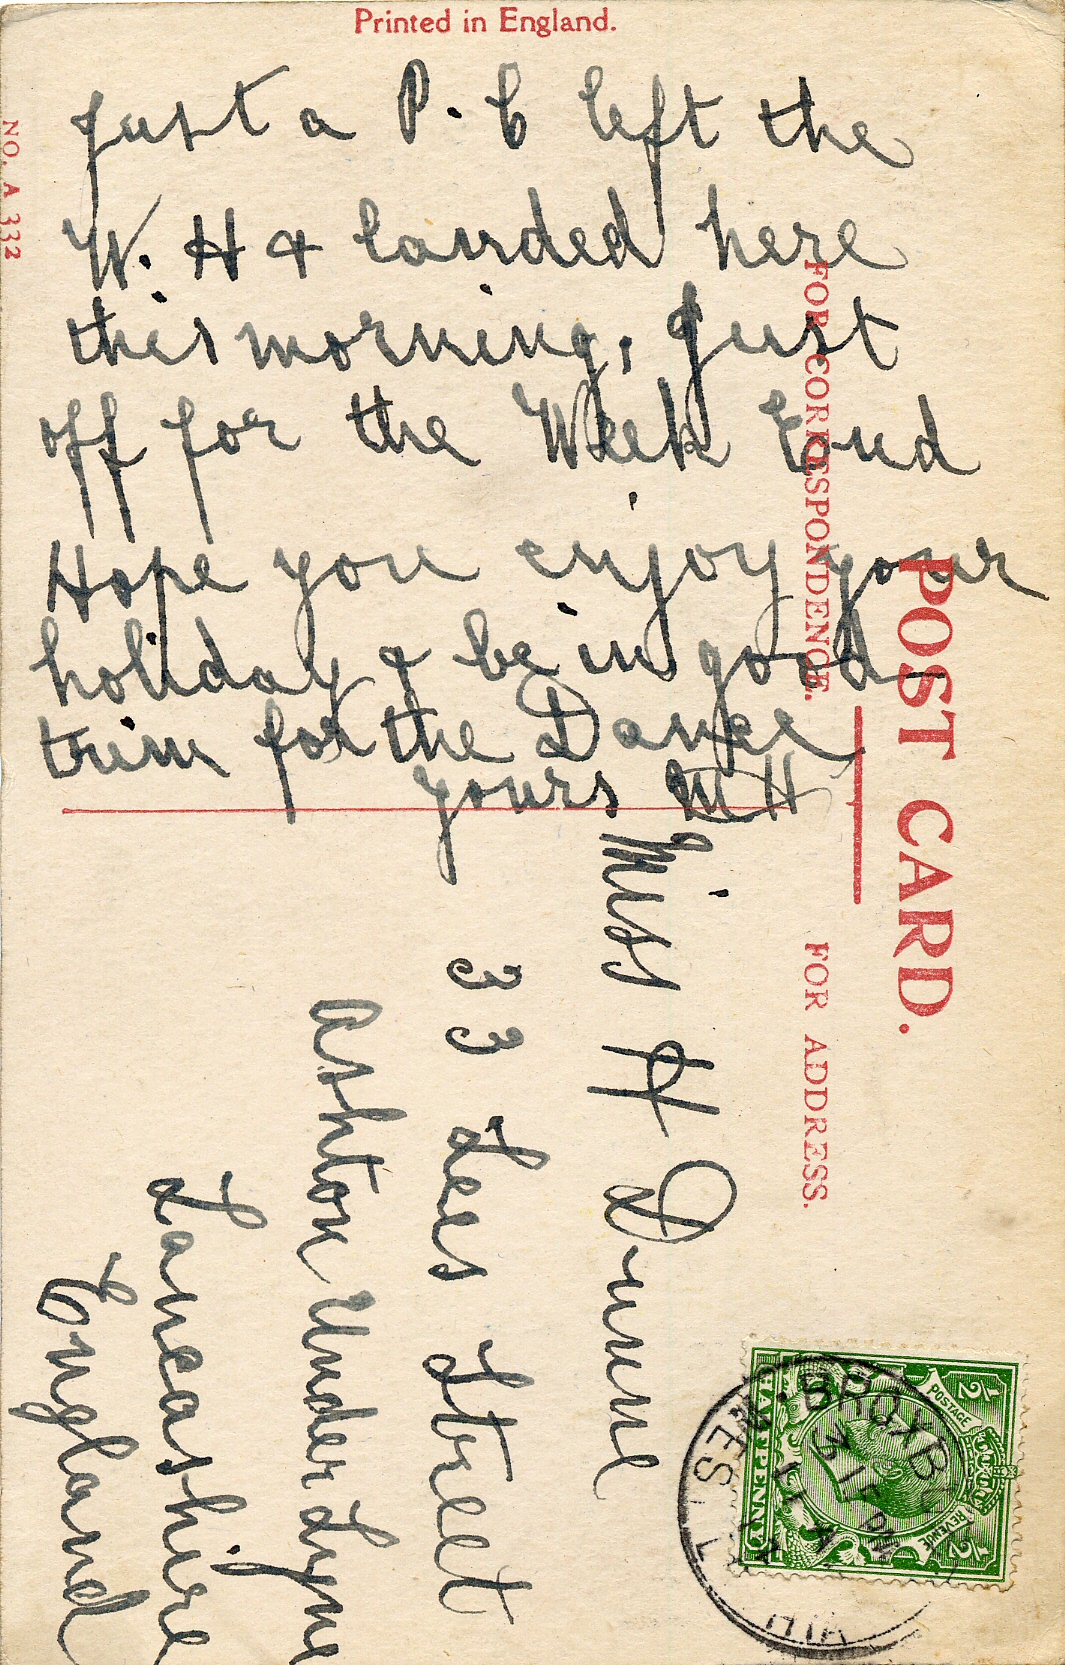 Printed in England.
NO. A 332
Just a P.C left the
W. H & landed here
this morning, Just
off for the Week End
Hope you enjoy your
holiday & be in good
trim for the Dance
yours MH
POST CARD.
FOR CORRESPONDENCE.
FOR ADDRESS.
Miss H Dunne
33 Lees Street
Ashton Under Lyne
Lancashire
England
POSTAGE
REVENUE
1/2
1/2
HALFPENNY
BROXB
WEST L